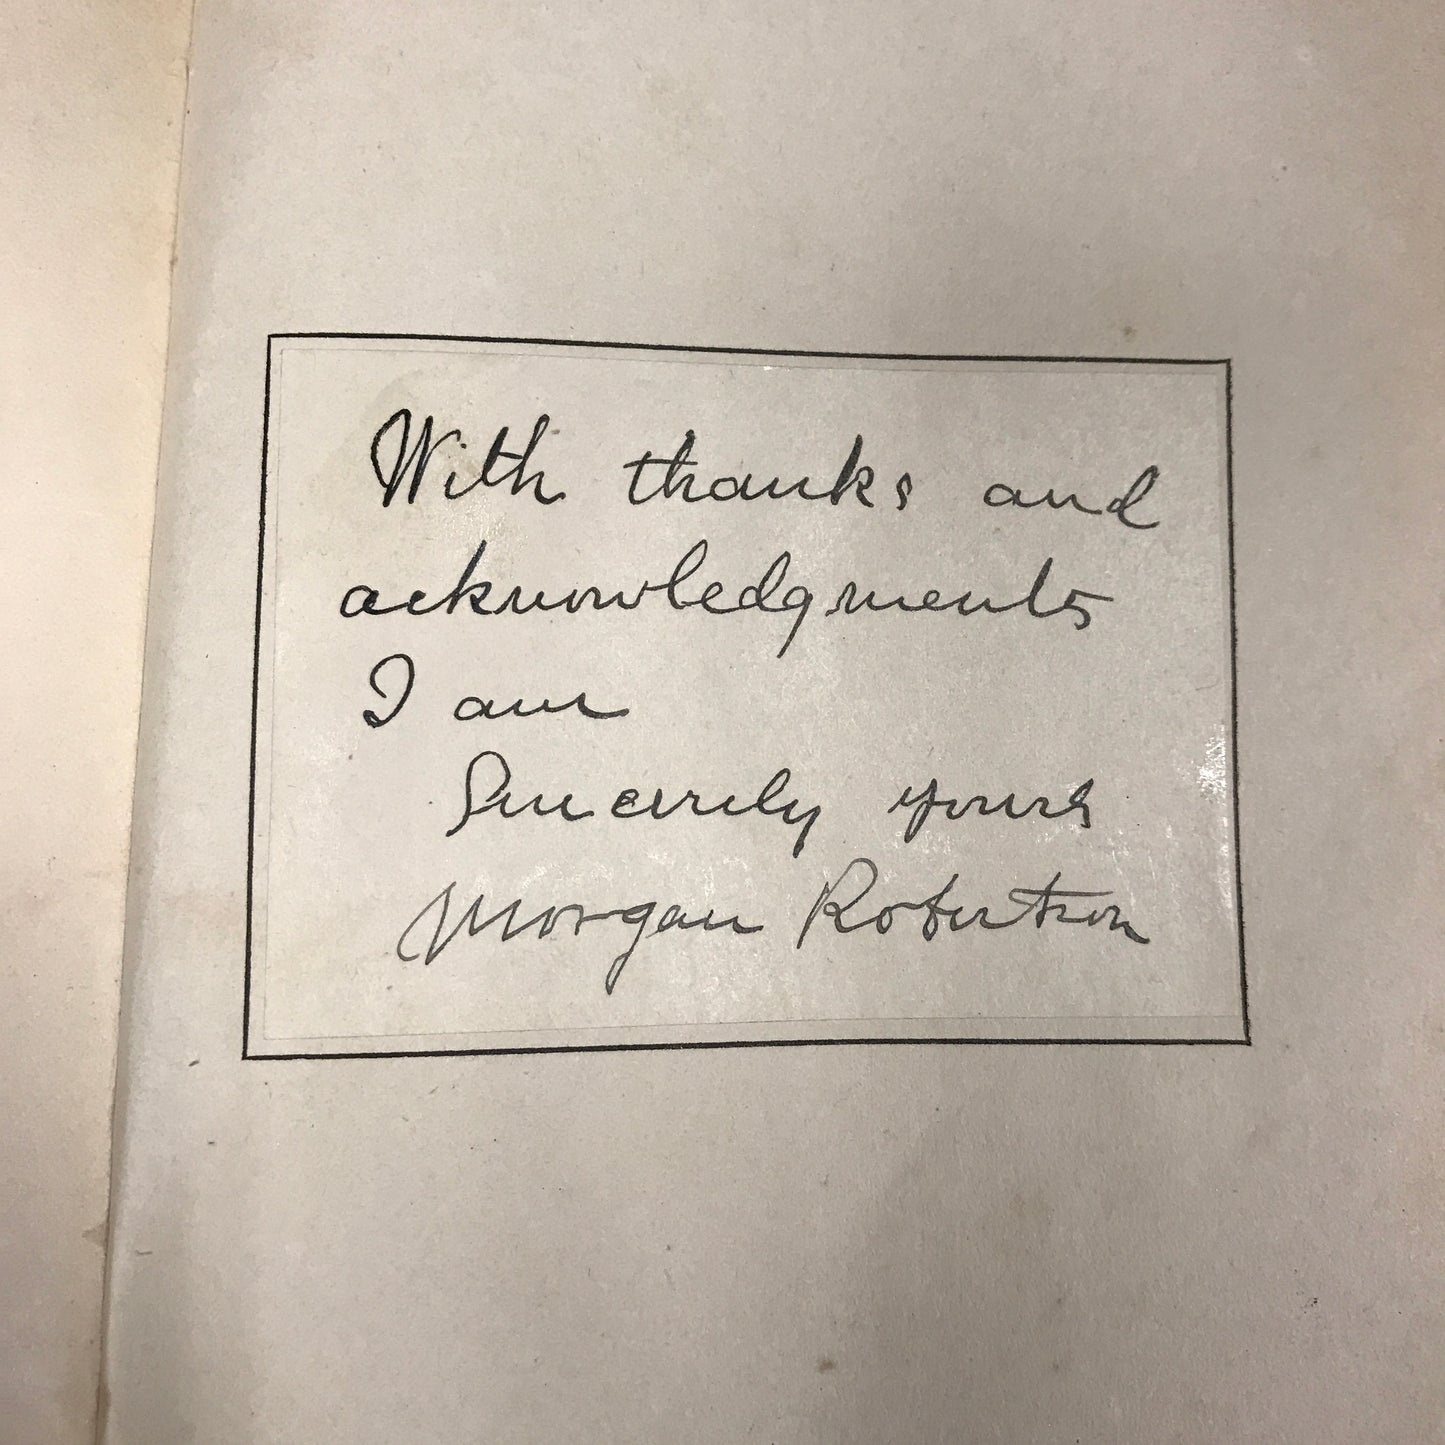 With thanks and
acknowledgments
I am
Sincerely yours
Morgan Robertson